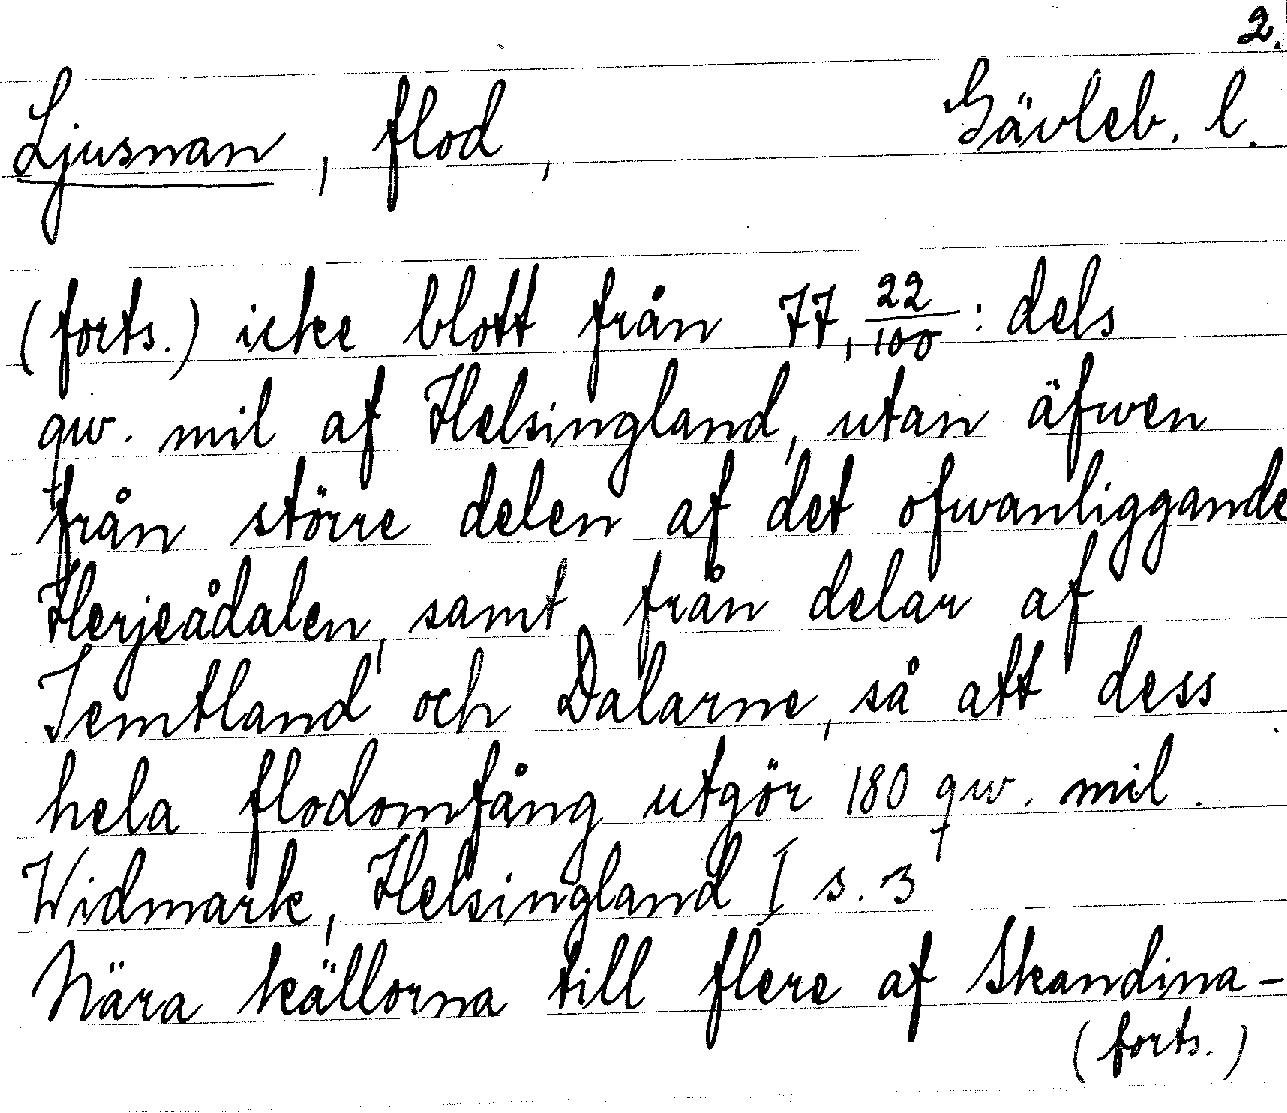 2.
Ljusnan, flod, Gävleb. l.
(forts.) icke blott från 77, 22/100: dels
qw. mil af Helsingland, utan äfwen
från större delen af det ofwanliggande
Herjeådalen, samt från delar af
Jemtland och Dalarne, så att dess
hela flodomfång utgör 180 qw. mil.
Widmark, Helsingland I s. 3
Nära källorna till flere af Skandina-
(forts.)